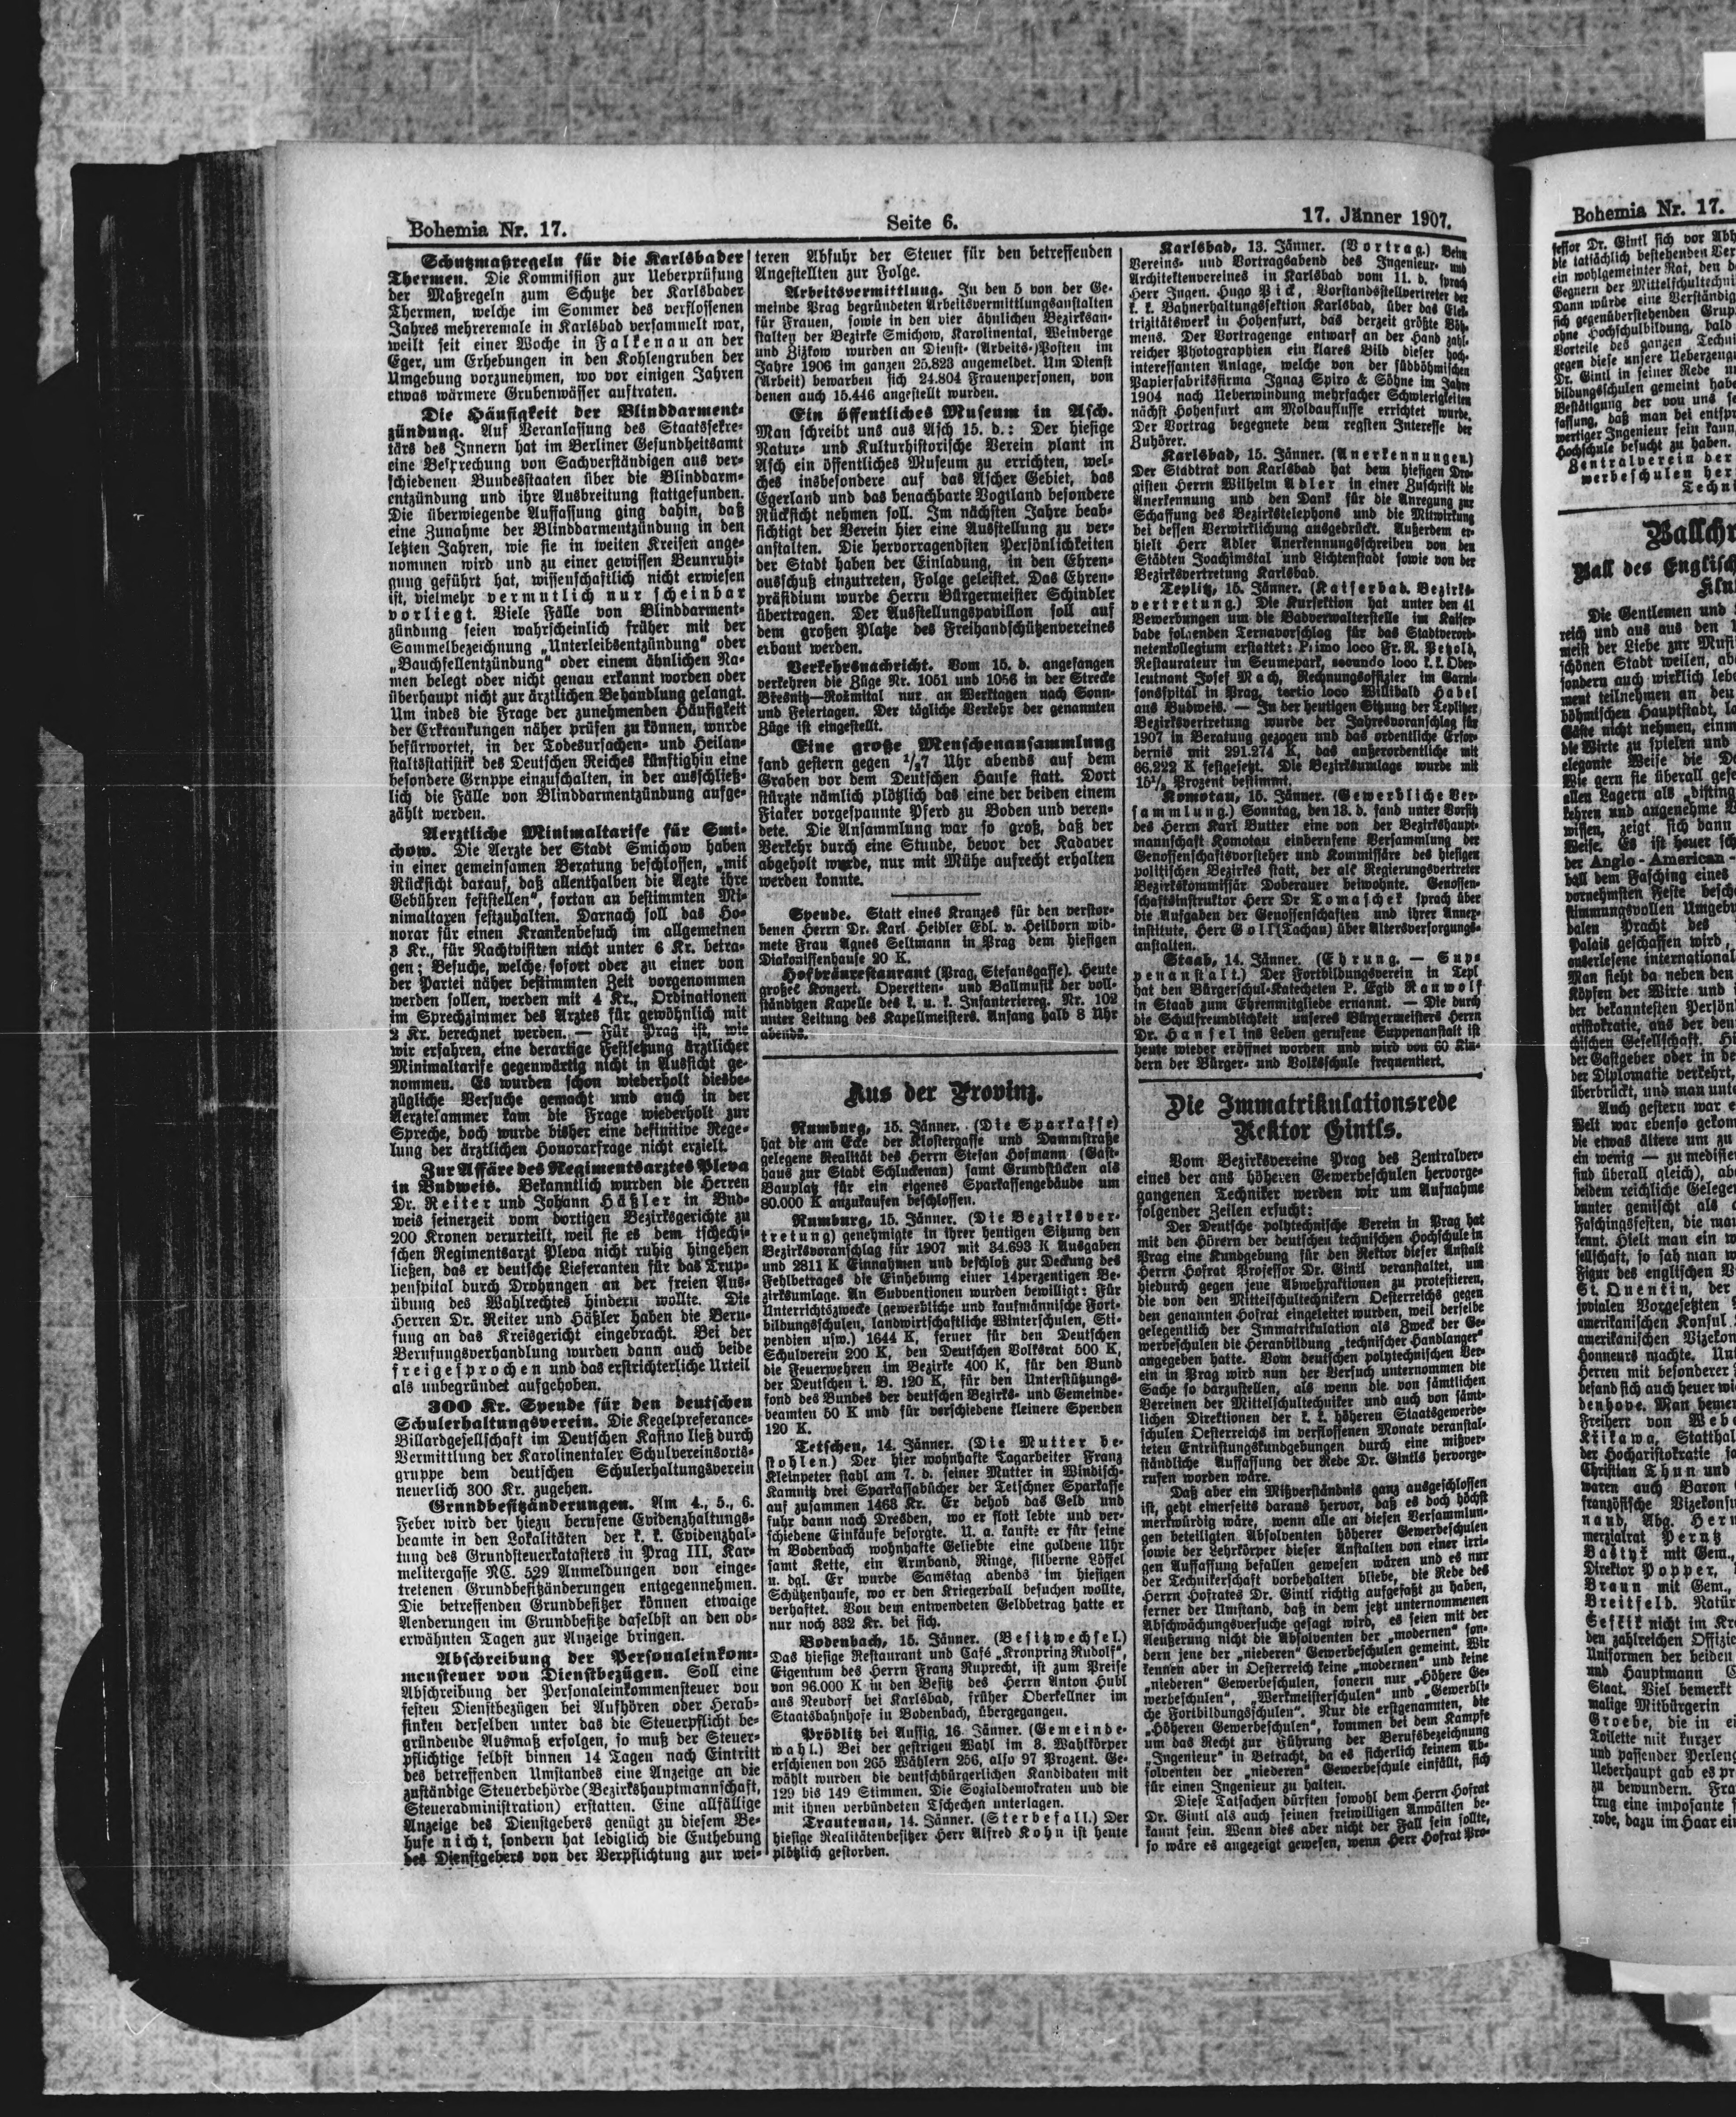 Bohemia Nr. 17.
Seite 6.
17. Jänner 1907.
Schutzmaßregeln für die Karlsbader
Thermen. Die Kommission zur Ueberprüfung
der Maßregeln zum Schutze der Karlsbader
Thermen, welche im Sommer des verflossenen
Jahres mehreremale in Karlsbad versammelt war,
weilt seit einer Woche in Falkenau an der
Eger, um Erhebungen in den Kohlengruben der
Umgebung vorzunehmen, wo vor einigen Jahren
etwas wärmere Grubenwässer auftraten.
Die Häufigkeit der Blinddarment-
zündung. Auf Veranlassung des Staatssekre-
tärs des Innern hat im Berliner Gesundheitsamt
eine Besprechung von Sachverständigen aus ver-
schiedenen Bundesstaaten über die Blinddarm-
entzündung und ihre Ausbreitung stattgefunden.
Die überwiegende Auffassung ging dahin, daß
eine Zunahme der Blinddarmentzündung in den
letzten Jahren, wie sie in weiten Kreisen ange-
nommen wird und zu einer gewissen Beunruhi-
gung geführt hat, wissenschaftlich nicht erwiesen
ist, vielmehr vermutlich nur scheinbar
vorliegt. Viele Fälle von Blinddarment-
zündung seien wahrscheinlich früher mit der
Sammelbezeichnung „Unterleibsentzündung“ oder
„Bauchfellentzündung“ oder einem ähnlichen Na-
men belegt oder nicht genau erkannt worden oder
überhaupt nicht zur ärztlichen Behandlung gelangt.
Um indes die Frage der zunehmenden Häufigkeit
der Erkrankungen näher prüfen zu können, wurde
befürwortet, in der Todesursachen- und Heilan-
staltsstatistik des Deutschen Reiches künftighin eine
besondere Gruppe einzuschalten, in der ausschließ-
lich die Fälle von Blinddarmentzündung aufge-
zählt werden.
Aerztliche Minimaltarife für Smi-
chow. Die Aerzte der Stadt Smichow haben
in einer gemeinsamen Beratung beschlossen, „mit
Rücksicht darauf, daß allenthalben die Aezte ihre
Gebühren feststellen“, fortan an bestimmten Mi-
nimaltaxen festzuhalten. Darnach soll das Ho-
norar für einen Krankenbesuch im allgemeinen
3 Kr., für Nachtvisiten nicht unter 6 Kr. betra-
gen; Besuche, welche sofort oder zu einer von
der Partei näher bestimmten Zeit vorgenommen
werden sollen, werden mit 4 Kr., Ordinationen
im Sprechzimmer des Arztes für gewöhnlich mit
2 Kr. berechnet werden. — Für Prag ist, wie
wir erfahren, eine derartige Festsetzung ärztlicher
Minimaltarife gegenwärtig nicht in Aussicht ge-
nommen. Es wurden schon wiederholt diesbe-
zügliche Versuche gemacht und auch in der
Aerztekammer kam die Frage wiederholt zur
Spreche, doch wurde bisher eine definitive Rege-
lung der ärztlichen Honorarfrage nicht erzielt.
Zur Affäre des Regimentsarztes Pleva
in Budweis. Bekanntlich wurden die Herren
Dr. Reiter und Johann Häßler in Bud-
weis seinerzeit vom dortigen Bezirksgerichte zu
200 Kronen verurteilt, weil sie es dem tschechi-
schen Regimentsarzt Pleva nicht ruhig hingehen
ließen, das er deutsche Lieferanten für das Trup-
penspital durch Drohungen an der freien Aus-
übung des Wahlrechtes hindern wollte. Die
Herren Dr. Reiter und Häßler haben die Beru-
fung an das Kreisgericht eingebracht. Bei der
Berufungsverhandlung wurden dann auch beide
freigesprochen und das erstrichterliche Urteil
als unbegründet aufgehoben.
300 Kr. Spende für den deutschen
Schulerhaltungsverein. Die Kegelpreferance-
Billardgesellschaft im Deutschen Kasino ließ durch
Vermittlung der Karolinentaler Schulvereinsorts-
gruppe dem deutschen Schulerhaltungsverein
neuerlich 300 Kr. zugehen.
Grundbesitzänderungen. Am 4., 5., 6.
Feber wird der hiezu berufene Evidenzhaltungs-
beamte in den Lokalitäten der k. k. Evidenzhal-
tung des Grundsteuerkatasters in Prag III, Kar-
melitergasse NC. 529 Anmeldungen von einge-
tretenen Grundbesitzänderungen entgegennehmen.
Die betreffenden Grundbesitzer können etwaige
Aenderungen im Grundbesitze daselbst an den ob-
erwähnten Tagen zur Anzeige bringen.
Abschreibung der Personaleinkom-
mensteuer von Dienstbezügen. Soll eine
Abschreibung der Personaleinkommensteuer von
festen Dienstbezügen bei Aufhören oder Herab-
sinken derselben unter das die Steuerpflicht be-
gründende Ausmaß erfolgen, so muß der Steuer-
pflichtige selbst binnen 14 Tagen nach Eintritt
des betreffenden Umstandes eine Anzeige an die
zuständige Steuerbehörde (Bezirkshauptmannschaft,
Steueradministration) erstatten. Eine allfällige
Anzeige des Dienstgebers genügt zu diesem Be-
hufe nicht, sondern hat lediglich die Enthebung
des Dienstgebers von der Verpflichtung zur wei-
teren Abfuhr der Steuer für den betreffenden
Angestellten zur Folge.
Arbeitsvermittlung. In den 5 von der Ge-
meinde Prag begründeten Arbeitsvermittlungsanstalten
für Frauen, sowie in den vier ähnlichen Bezirksan-
stalten der Bezirke Smichow, Karolinental, Weinberge
und Zizkow wurden an Dienst- (Arbeits-)Posten im
Jahre 1906 im ganzen 25.823 angemeldet. Um Dienst
(Arbeit) bewarben sich 24.804 Frauenpersonen, von
denen auch 15.446 angestellt wurden.
Ein öffentliches Museum in Asch.
Man schreibt uns aus Asch 15. d.: Der hiesige
Natur- und Kulturhistorische Verein plant in
Asch ein öffentliches Museum zu errichten, wel-
ches insbesondere auf das Ascher Gebiet, das
Egerland und das benachbarte Vogtland besondere
Rücksicht nehmen soll. Im nächsten Jahre beab-
sichtigt der Verein hier eine Ausstellung zu ver-
anstalten. Die hervorragendsten Persönlichkeiten
der Stadt haben der Einladung, in den Ehren-
ausschuß einzutreten, Folge geleistet. Das Ehren-
präsidium wurde Herrn Bürgermeister Schindler
übertragen. Der Ausstellungspavillon soll auf
dem großen Platze des Freihandschützenvereines
erbaut werden.
Verkehrsnachricht. Vom 15. d. angefangen
verkehren die Züge Nr. 1051 und 1056 in der Strecke
Bresnitz—Rožmital nur an Werktagen nach Sonn-
und Feiertagen. Der tägliche Verkehr der genannten
Züge ist eingestellt.
Eine große Menschenansammlung
fand gestern gegen ½7 Uhr abends auf dem
Graben vor dem Deutschen Hause statt. Dort
stürzte nämlich plötzlich das eine der beiden einem
Fiaker vorgespannte Pferd zu Boden und veren-
dete. Die Ansammlung war so groß, daß der
Verkehr durch eine Stunde, bevor der Kadaver
abgeholt wurde, nur mit Mühe aufrecht erhalten
werden konnte.
Spende. Statt eines Kranzes für den verstor-
benen Herrn Dr. Karl Heidler Edl. v. Heilborn wid-
mete Frau Agnes Seltmann in Prag dem hiesigen
Diakonissenhause 20 K.
Hofbräurestaurant (Prag, Stefansgasse). Heute
großes Konzert. Operetten- und Ballmusik der voll-
ständigen Kapelle des k. u. k. Infanteriereg. Nr. 102
unter Leitung des Kapellmeisters. Anfang halb 8 Uhr
abends.
Aus der Provinz.
Rumburg, 15. Jänner. (Die Sparkasse)
hat die am Ecke der Klostergasse und Dammstraße
gelegene Realität des Herrn Stefan Hofmann (Gast-
haus zur Stadt Schluckenau) samt Grundstücken als
Bauplatz für ein eigenes Sparkassengebäude um
80.000 K anzukaufen beschlossen.
Rumburg, 15. Jänner. (Die Bezirksver-
tretung) genehmigte in ihrer heutigen Sitzung den
Bezirksvoranschlag für 1907 mit 34.693 K Ausgaben
und 2811 K Einnahmen und beschloß zur Deckung des
Fehlbetrages die Einhebung einer 14perzentigen Be-
zirksumlage. An Subventionen wurden bewilligt: Für
Unterrichtszwecke (gewerbliche und kaufmännische Fort-
bildungsschulen, landwirtschaftliche Winterschulen, Sti-
pendien usw.) 1644 K, ferner für den Deutschen
Schulverein 200 K, den Deutschen Volksrat 500 K,
die Feuerwehren im Bezirke 400 K, für den Bund
der Deutschen i. B. 120 K, für den Unterstützungs-
fond des Bundes der deutschen Bezirks- und Gemeinde-
beamten 50 K und für verschiedene kleinere Spenden
120 K.
Tetschen, 14. Jänner. (Die Mutter be-
stohlen.) Der hier wohnhafte Tagarbeiter Franz
Kleinpeter stahl am 7. d. seiner Mutter in Windisch-
Kamnitz drei Sparkassabücher der Tetschner Sparkasse
auf zusammen 1463 Kr. Er behob das Geld und
fuhr dann nach Dresden, wo er flott lebte und ver-
schiedene Einkäufe besorgte. U. a. kaufte er für seine
in Bodenbach wohnhafte Geliebte eine goldene Uhr
samt Kette, ein Armband, Ringe, silberne Löffel
u. dgl. Er wurde Samstag abends im hiesigen
Schützenhause, wo er den Kriegerball besuchen wollte,
verhaftet. Von dem entwendeten Geldbetrag hatte er
nur noch 332 Kr. bei sich.
Bodenbach, 15. Jänner. (Besitzwechsel.)
Das hiesige Restaurant und Café „Kronprinz Rudolf“,
Eigentum des Herrn Franz Ruprecht, ist zum Preise
von 96.000 K in den Besitz des Herrn Anton Hubl
aus Neudorf bei Karlsbad, früher Oberkellner im
Staatsbahnhofe in Bodenbach, übergegangen.
Prödlitz bei Aussig, 16. Jänner. (Gemeinde-
wahl.) Bei der gestrigen Wahl im 3. Wahlkörper
erschienen von 265 Wählern 256, also 97 Prozent. Ge-
wählt wurden die deutschbürgerlichen Kandidaten mit
129 bis 149 Stimmen. Die Sozialdemokraten und die
mit ihnen verbündeten Tschechen unterlagen.
Trautenau, 14. Jänner. (Sterbefall.) Der
hiesige Realitätenbesitzer Herr Alfred Kohn ist heute
plötzlich gestorben.
Karlsbad, 13. Jänner. (Vortrag.) Beim
Vereins- und Vortragsabend des Ingenieur- und
Architektenvereines in Karlsbad vom 11. d. sprach
Herr Ingen. Hugo Pick, Vorstandsstellvertreter der
k. k. Bahnerhaltungssektion Karlsbad, über das Elek-
trizitätswerk in Hohenfurt, das derzeit größte Böh-
mens. Der Vortragende entwarf an der Hand zahl-
reicher Photographien ein klares Bild dieser hoch-
interessanten Anlage, welche von der südböhmischen
Papierfabriksfirma Ignaz Spiro & Söhne im Jahre
1904 nach Ueberwindung mehrfacher Schwierigkeiten
nächst Hohenfurt am Moldauflusse errichtet wurde.
Der Vortrag begegnete dem regsten Interesse der
Zuhörer.
Karlsbad, 15. Jänner. (Anerkennungen.)
Der Stadtrat von Karlsbad hat dem hiesigen Dro-
gisten Herrn Wilhelm Adler in einer Zuschrift die
Anerkennung und den Dank für die Anregung zur
Schaffung des Bezirkstelephons und die Mitwirkung
bei dessen Verwirklichung ausgedrückt. Außerdem er-
hielt Herr Adler Anerkennungsschreiben von den
Städten Joachimstal und Lichtenstadt sowie von der
Bezirksvertretung Karlsbad.
Teplitz, 15. Jänner. (Kaiserbad. Bezirks-
vertretung.) Die Kursektion hat unter den 41
Bewerbungen um die Badverwalterstelle im Kaiser-
bade folgenden Ternavorschlag für das Stadtverord-
netenkollegium erstattet: Primo loco Fr. R. Petzold,
Restaurateur im Seumepark, secundo loco k. k. Ober-
leutnant Josef Mach, Rechnungsoffizier im Garni-
sonsspital in Prag, tertio loco Willibald Habel
aus Budweis. — In der heutigen Sitzung der Teplitzer
Bezirksvertretung wurde der Jahresvoranschlag für
1907 in Beratung gezogen und das ordentliche Erfor-
dernis mit 291.274 K, das außerordentliche mit
66.222 K festgesetzt. Die Bezirksumlage wurde mit
15½ Prozent bestimmt.
Komotau, 15. Jänner. (Gewerbliche Ver-
sammlung.) Sonntag, den 13. d. fand unter Vorsitz
des Herrn Karl Butter eine von der Bezirkshaupt-
mannschaft Komotau einberufene Versammlung der
Genossenschaftsvorsteher und Kommissäre des hiesigen
politischen Bezirkes statt, der als Regierungsvertreter
Bezirkskommissär Doberauer beiwohnte. Genossen-
schaftsinstruktor Herr Dr Tomaschek sprach über
die Aufgaben der Genossenschaften und ihrer Annex-
institute, Herr Goll (Tachau) über Altersversorgungs-
anstalten.
Staab, 14. Jänner. (Ehrung. — Sup-
penanstalt.) Der Fortbildungsverein in Tepl
hat den Bürgerschul-Katecheten P. Egid Rauwolf
in Staab zum Ehrenmitgliede ernannt. — Die durch
die Schulfreundlichkeit unseres Bürgermeisters Herrn
Dr. Hansel ins Leben gerufene Suppenanstalt ist
heute wieder eröffnet worden und wird von 60 Kin-
dern der Bürger- und Volksschule frequentiert.
Die Immatrikulationsrede
Rektor Gintls.
Vom Bezirksvereine Prag des Zentralver-
eines der aus höheren Gewerbeschulen hervorge-
gangenen Techniker werden wir um Aufnahme
folgender Zeilen ersucht:
Der Deutsche polytechnische Verein in Prag hat
mit den Hörern der deutschen technischen Hochschule in
Prag eine Kundgebung für den Rektor dieser Anstalt
Herrn Hofrat Professor Dr. Gintl veranstaltet, um
hiedurch gegen jene Abwehraktionen zu protestieren,
die von den Mittelschultechnikern Oesterreichs gegen
den genannten Hofrat eingeleitet wurden, weil derselbe
gelegentlich der Immatrikulation als Zweck der Ge-
werbeschulen die Heranbildung „technischer Handlanger“
angegeben hatte. Vom deutschen polytechnischen Ver-
ein in Prag wird nun der Versuch unternommen die
Sache so darzustellen, als wenn die von sämtlichen
Vereinen der Mittelschultechniker und auch von sämt-
lichen Direktionen der k. k. höheren Staatsgewerbe-
schulen Oesterreichs im verflossenen Monate veranstal-
teten Entrüstungskundgebungen durch eine mißver-
ständliche Auffassung der Rede Dr. Gintls hervorge-
rufen worden wäre.
Daß aber ein Mißverständnis ganz ausgeschlossen
ist, geht einerseits daraus hervor, daß es doch höchst
merkwürdig wäre, wenn alle an diesen Versammlun-
gen beteiligten Absolventen höherer Gewerbeschulen
sowie der Lehrkörper dieser Anstalten von einer irri-
gen Auffassung befallen gewesen wären und es nur
der Technikerschaft vorbehalten bliebe, die Rede des
Herrn Hofrates Dr. Gintl richtig aufgefaßt zu haben,
ferner der Umstand, daß in dem jetzt unternommenen
Abschwächungsversuche gesagt wird, es seien mit der
Aeußerung nicht die Absolventen der „modernen“ son-
dern jene der „niederen“ Gewerbeschulen gemeint. Wir
kennen aber in Oesterreich keine „modernen“ und keine
„niederen“ Gewerbeschulen, sonern nur „Höhere Ge-
werbeschulen“, „Werkmeisterschulen“ und „Gewerbli-
che Fortbildungsschulen“. Nur die erstgenannten, die
„Höheren Gewerbeschulen“, kommen bei dem Kampfe
um das Recht zur Führung der Berufsbezeichnung
„Ingenieur“ in Betracht, da es sicherlich keinem Ab-
solventen der „niederen“ Gewerbeschule einfällt, sich
für einen Ingenieur zu halten.
Diese Tatsachen dürften sowohl dem Herrn Hofrat
Dr. Gintl als auch seinen freiwilligen Anwälten be-
kannt sein. Wenn dies aber nicht der Fall sein sollte,
so wäre es angezeigt gewesen, wenn Herr Hofrat Pro-
Bohemia Nr. 17.
fessor Dr. Gintl sich vor
die tatsächlich bestehenden
ein wohlgemeinter Rat, den
Gegnern der
Dann würde eine
sich gegenüberstehenden
ohne Hochschulbildung, bald
Vorteile des ganzen
gegen diese unsere
Dr. Gintl in seiner Rede
bildungsschulen gemeint
Bestätigung der von uns
fassung, daß man bei
wertiger Ingenieur sein kann,
Hochschule besucht zu haben.
Zentralverein der
werbeschulen
Ball des
Die Gentlemen und
reich und aus aus den
meist der Liebe zur
schönen Stadt weilen,
sondern auch wirklich
ment teilnehmen an
böhmischen Hauptstadt,
Gäste nicht nehmen,
die Wirte zu spielen und
elegante Weise die
Wie gern sie überall
allen Lagern als
kehren und angenehme
wissen, zeigt sich dann
Weise. Es ist heuer
der Anglo-American-
ball dem Fasching eines
vornehmsten Feste
stimmungsvollen
balen Pracht des
Palais geschaffen wird,
auserlesene
Man sieht da neben den
Köpfen der Wirte und
der bekanntesten
aristokratie, aus der
chischen Gesellschaft.
der Gastgeber oder in
der Diplomatie verkehrt,
überbrückt, und man
Auch gestern war
Welt war ebenso
die etwas ältere um zu
ein wenig — zu
sind überall gleich),
beidem reichliche
bunter gemischt als
Faschingsfesten, die
kennt. Hielt man ein
sellschaft, so sah man
Figur des englischen
St. Quentin, der
jovialen Vorgesetzten
amerikanischen Konsul
amerikanischen
Honneurs machte.
Herren mit besonderer
befand sich auch heuer
denhove. Man
Freiherr von
Křikawa,
der Hocharistokratie
Christian Thun und
waren auch Baron
französische
nand, Abg.
merzialrat Perutz
mit Gem.,
Direktor Popper,
Braun mit Gem.,
Breitfeld.
nicht im
den zahlreichen
Uniformen der beiden
und Hauptmann
Staat. Viel bemerkt
malige Mitbürgerin
Groebe, die in
Toilette mit kurzer
und passender
Ueberhaupt gab es
zu bewundern.
trug eine imposante
robe, dazu im Haar